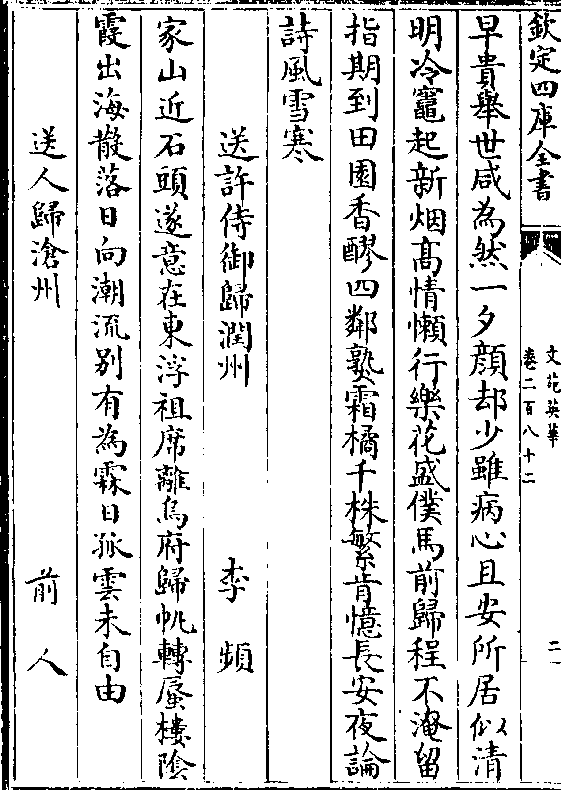 欽定四庫全書
文苑英華
卷二百八十二
二
早貴舉世咸為然一夕顔却少雖病心且安所居似清
明冷竈起新烟髙情懶行樂花盛僕馬前歸程不淹留
指期到田園香醪四鄰熟霜橘千株繁肯憶長安夜論
詩風雪寒
送許侍御歸潤州 李頻
家山近石頭遂意在東浮祖席離烏府歸帆轉蜃樓陰
霞出海散落日向潮流别有為霖日孤雲未自由
送人歸滄州 前人